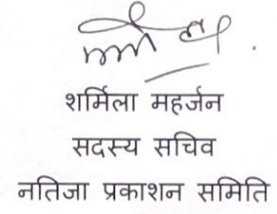 शर्मिला महर्जन
सदस्य सचिव
नतिजा प्रकाशन समिति